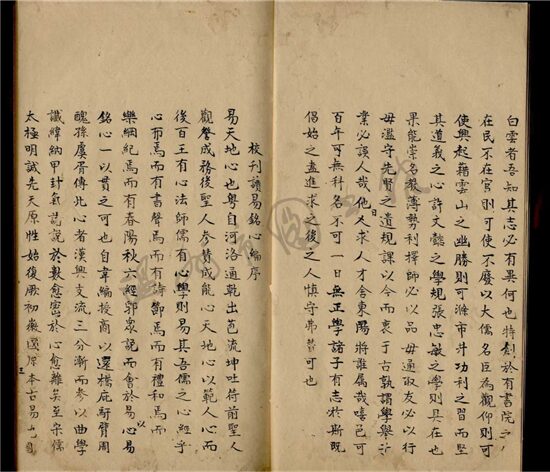 白雲者吾知其志必有異何也特創於有書院之
在民不在官則可使不廢以大儒名臣為觀仰則可
使興起藉雲山之幽勝則可滌市井功利之習而堅
其道義之心許文懿之學規張忠敏之學則具在也
果能崇名教薄勢利擇師必以品毋通取友必以行
毋濫守先賢之遺規課以今而衷于古敦謂學舉
業必誤人哉他日求人才舍東陽將誰屬哉嘻邑可
百年可無科名不可一日無正學諸子有志於斯既
倡始之盍進求之後之人慎守弗替可也
校刊讀易銘心編序
易天地心也粵自河洛通乾出苞流坤吐符前聖人
觀磬成務後聖人參贊成能心天地心以範人心而
後百王有心法師儒有心學則易其吾儒之心經乎
心布焉而有書聲焉而有詩節焉而有禮和焉而
樂綱紀焉而有春陽秋六經郛眾說而會於易心易
銘心一以貫之可也自韋編授商以還橋庇馯臂周
醜孫虞胥傳此心者漢興支流三分漸而參以曲學
讖緯納甲卦氣
說於數愈
出於心愈離矣至宋儒
太極明誠先天原性始復厥初